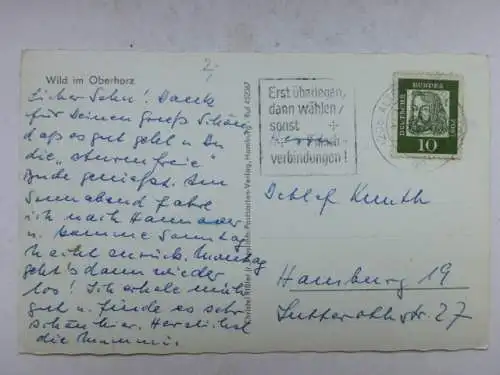 2,-
Wild im Oberharz
Lieber Sohn! Dank
für Deinen Gruß. Schön,
daß es gut geht u. Du
die „sturmfreie"
Bude genießt. Am
Sonnabend fahre
ich nach Hannover
u. komme Sonntag
Nacht zurück. Montag
geht's dann wieder
los! Ich erhole mich
gut u. finde es sehr
schön hier. Herzlichst
die Mammi.
Postkarten-Verlag, Hamburg
Erst überlegen,
dann wählen,
sonst
verbindungen!
DEUTSCHE
BUNDES
POST
10
Detlef
Hamburg 19
Lutterothstr. 27